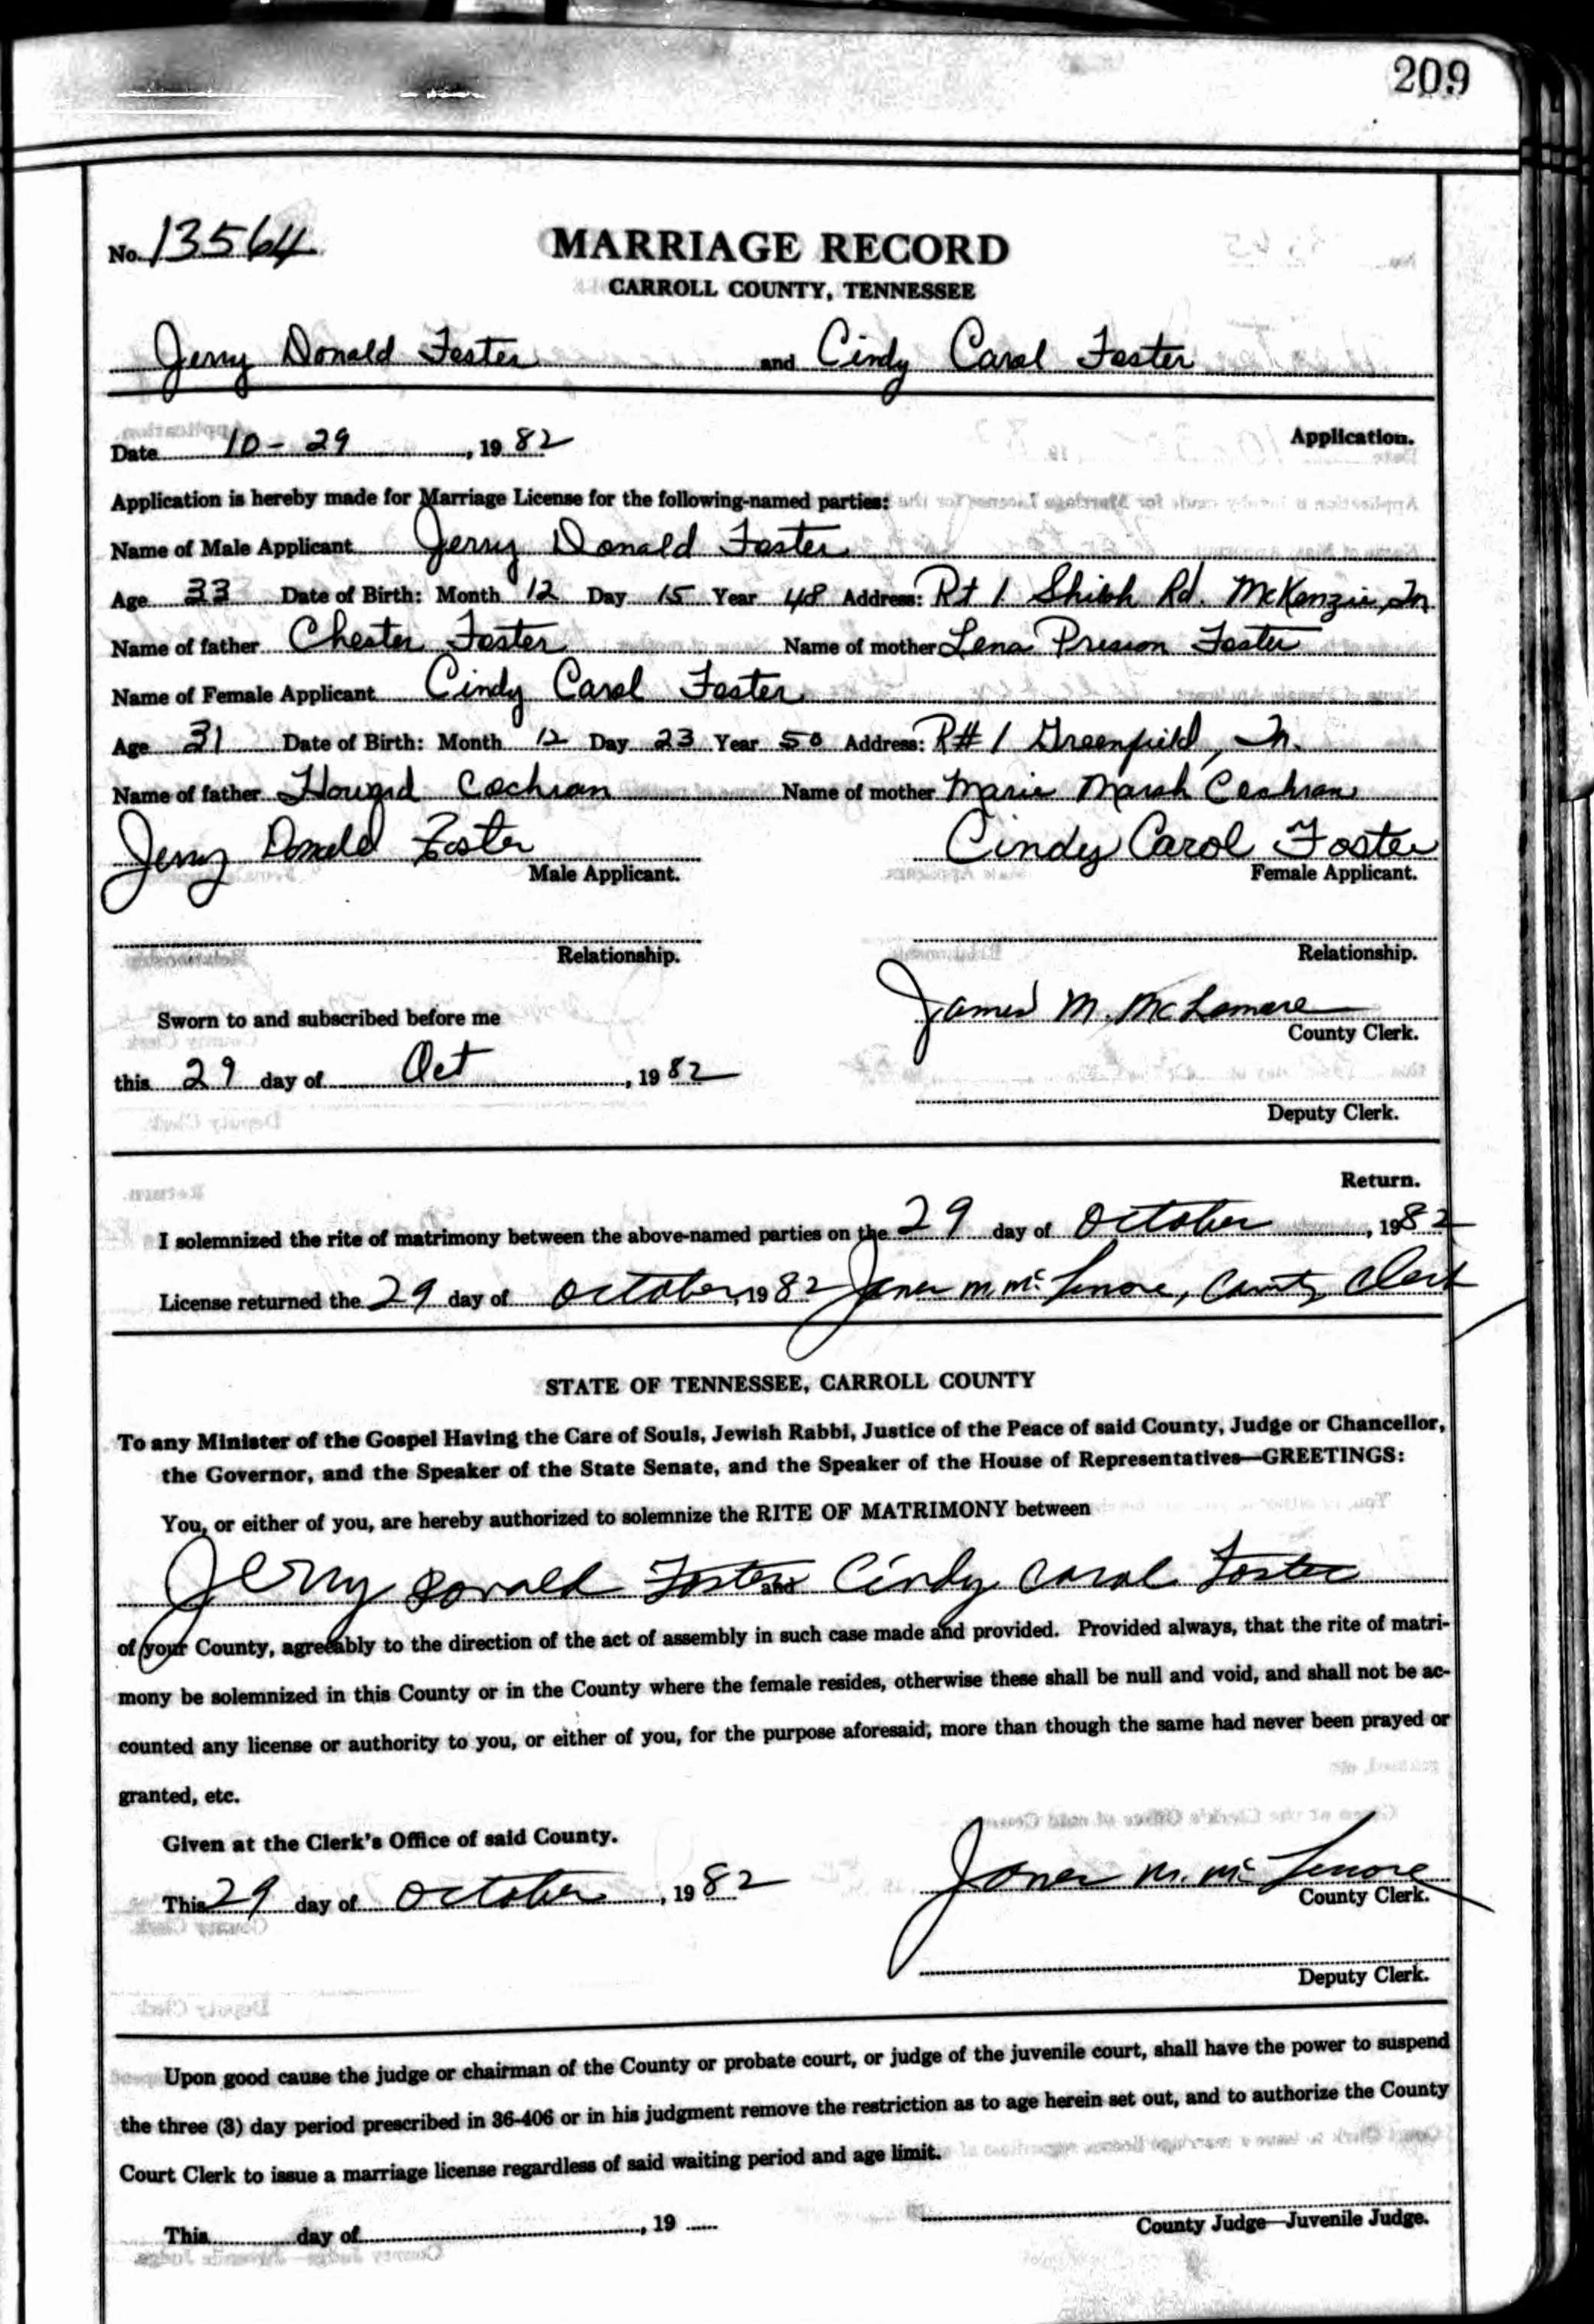 209
No. 13564
MARRIAGE RECORD
CARROLL COUNTY, TENNESSEE
Jerry Donald Foster and Cindy Carol Foster
Date 10-29, 1982 Application.
Application is hereby made for Marriage License for the following-named parties:
Name of Male Applicant Jerry Donald Foster
Age 33 Date of Birth: Month 12 Day 15 Year 48 Address: Rt 1 Shiloh Rd. McKenzie, Tn
Name of father Chester Foster Name of mother Lena Presson Foster
Name of Female Applicant Cindy Carol Foster
Age 31 Date of Birth: Month 12 Day 23 Year 50 Address: R#1 Greenfield, Tn.
Name of father Howard Cochran Name of mother Marie Marsh Cochran
Jerry Donald Foster Cindy Carol Foster
Male Applicant. Female Applicant.
Relationship. Relationship.
James M. McLemore
Sworn to and subscribed before me County Clerk.
this 29 day of Oct, 1982
Deputy Clerk.
Return.
I solemnized the rite of matrimony between the above-named parties on the 29 day of October, 1982
License returned the 29 day of October, 1982 James M. McLemore, County Clerk
STATE OF TENNESSEE, CARROLL COUNTY
To any Minister of the Gospel Having the Care of Souls, Jewish Rabbi, Justice of the Peace of said County, Judge or Chancellor,
the Governor, and the Speaker of the State Senate, and the Speaker of the House of Representatives—GREETINGS:
You, or either of you, are hereby authorized to solemnize the RITE OF MATRIMONY between
Jerry Donald Foster and Cindy Carol Foster
of your County, agreeably to the direction of the act of assembly in such case made and provided. Provided always, that the rite of matri-
mony be solemnized in this County or in the County where the female resides, otherwise these shall be null and void, and shall not be ac-
counted any license or authority to you, or either of you, for the purpose aforesaid, more than though the same had never been prayed or
granted, etc.
Given at the Clerk's Office of said County.
This 29 day of October, 1982 James M. McLemore
County Clerk.
Deputy Clerk.
Upon good cause the judge or chairman of the County or probate court, or judge of the juvenile court, shall have the power to suspend
the three (3) day period prescribed in 36-406 or in his judgment remove the restriction as to age herein set out, and to authorize the County
Court Clerk to issue a marriage license regardless of said waiting period and age limit.
This day of , 19
County Judge—Juvenile Judge.